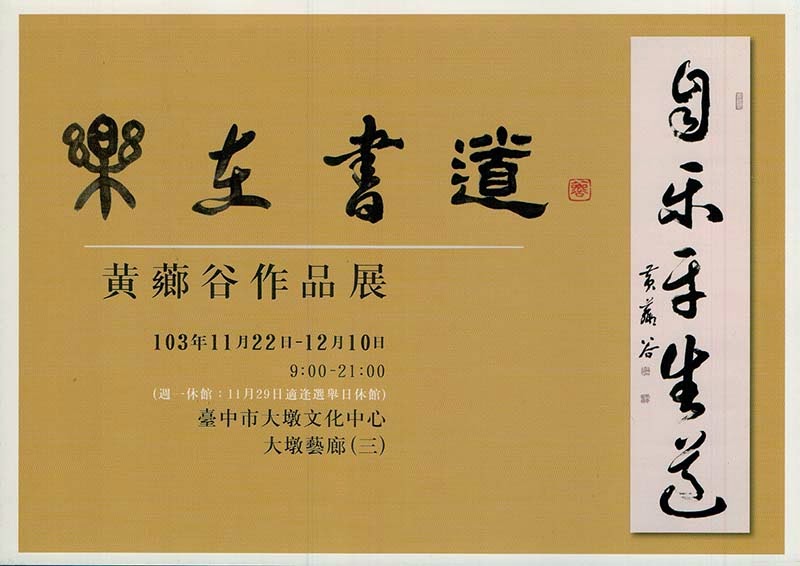 樂在書道
黃薌谷作品展
103年11月22日-12月10日
9:00-21:00
(週一休館：11月29日適逢選舉日休館)
臺中市大墩文化中心
大墩藝廊(三)
自乐平生道
黃薌谷